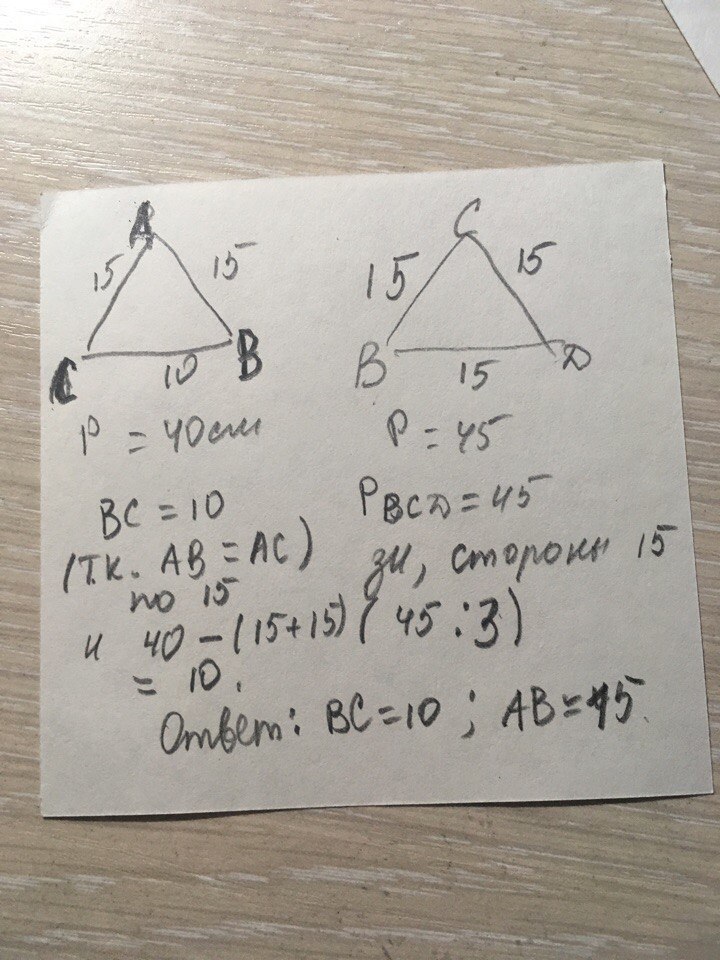 A
15 15
C 10 B
P = 40 см
BC = 10
(т.к. AB = AC)
по 15
и 40 - (15+15)
= 10.
C
15 15
B 15 D
P = 45
P BCD = 45
зн, стороны 15
(45 : 3)
Ответ: BC = 10 ; AB = 15.